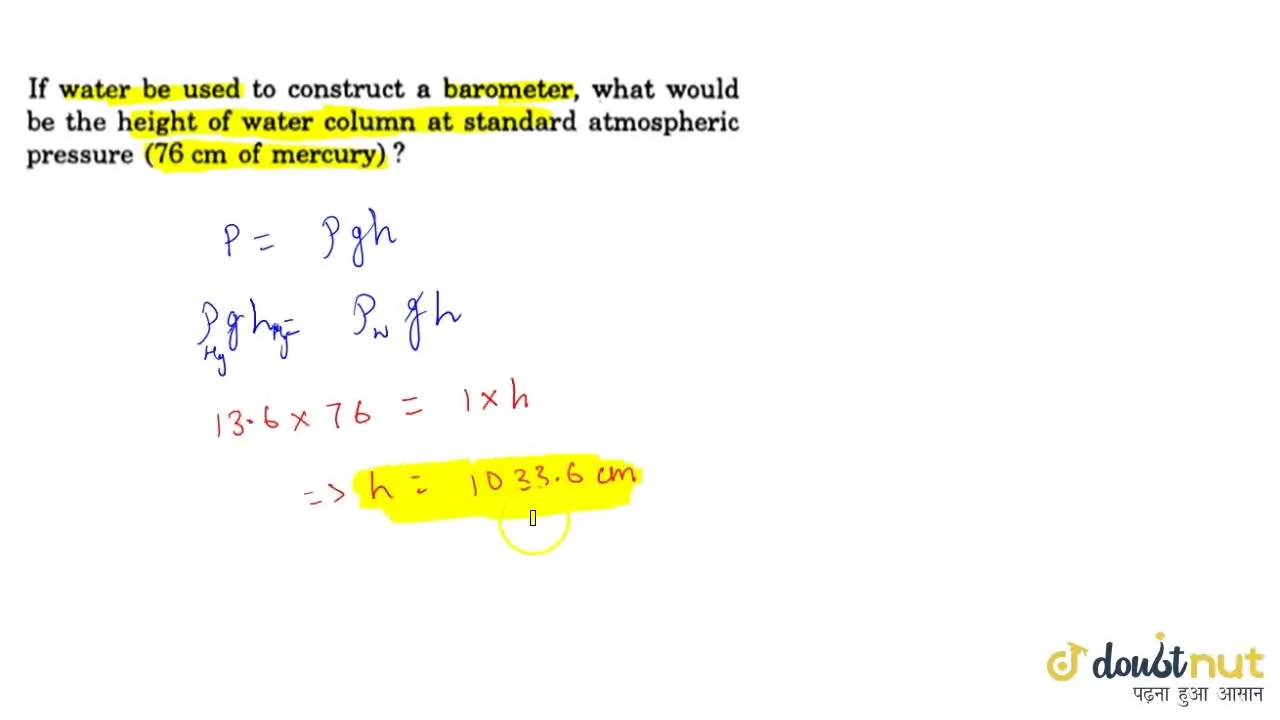 If water be used to construct a barometer, what would
be the height of water column at standard atmospheric
pressure (76 cm of mercury) ?
P = ρgh
ρHg g hHg = ρw g h
13.6 × 76 = 1 × h
=> h = 1033.6 cm
doubtnut
पढ़ना हुआ आसान